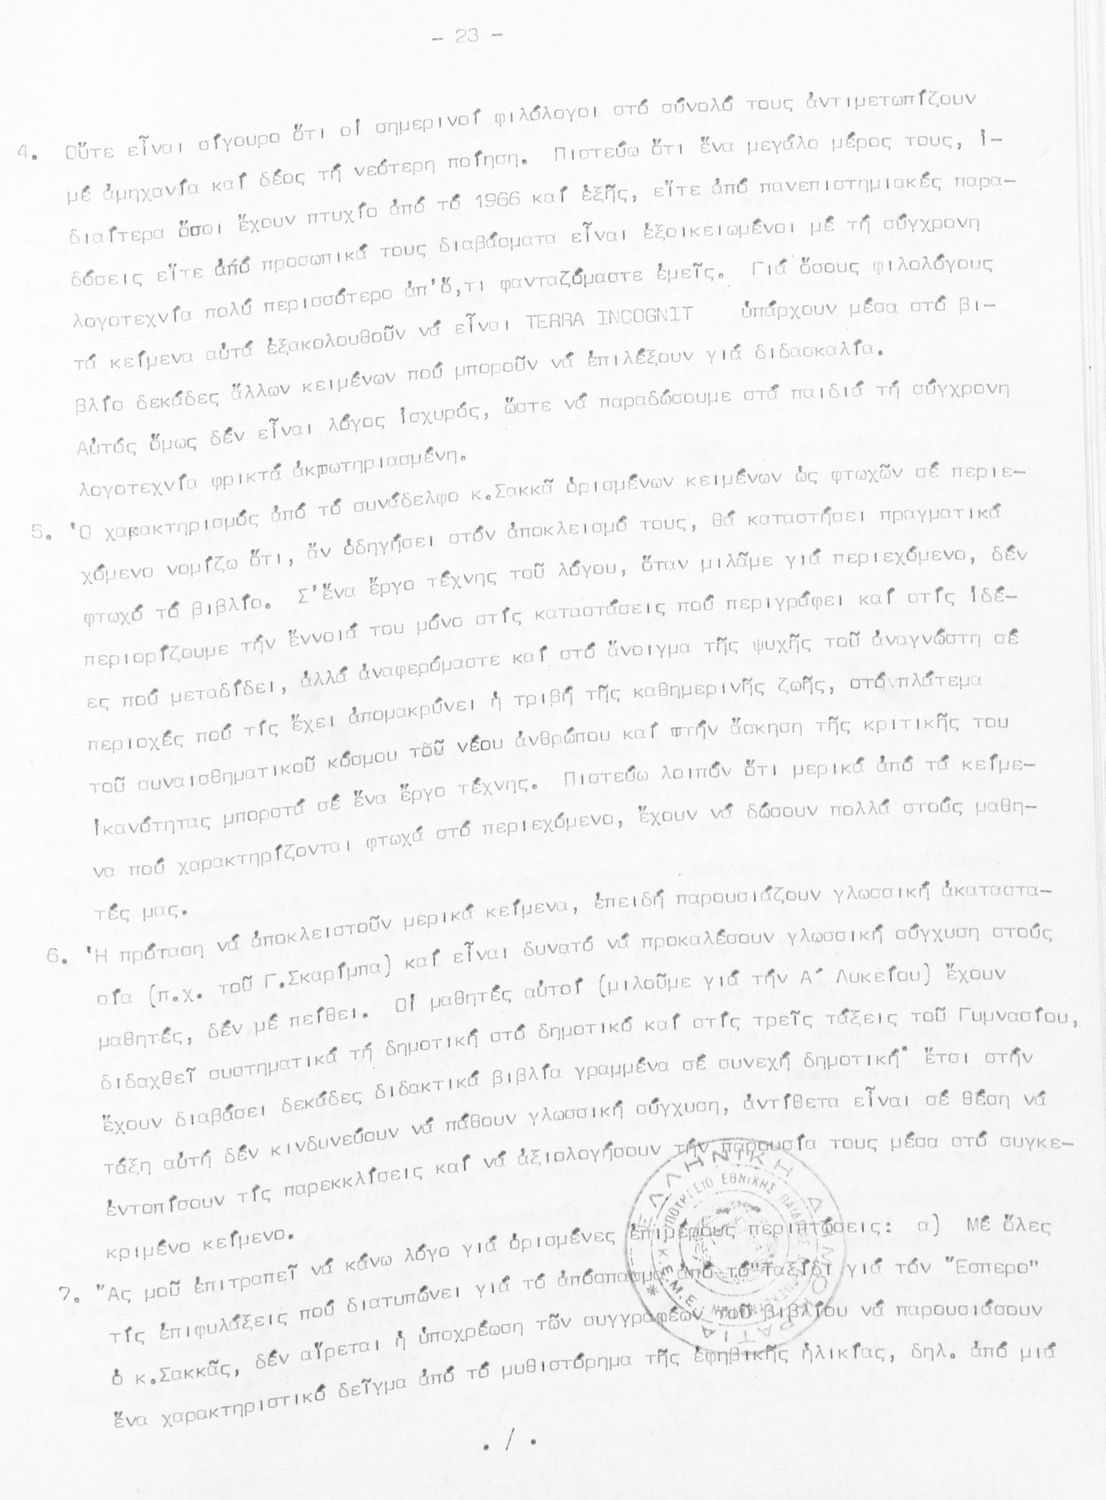 - 23 -
4. Οὔτε εἶναι σίγουρο ὅτι οἱ σημερινοί φιλόλογοι στό σύνολό τους ἀντιμετωπίζουν
μέ ἀμηχανία καί δέος τή νεότερη ποίηση. Πιστεύω ὅτι ἕνα μεγάλο μέρος τους, ἰ-
διαίτερα ὅσοι ἔχουν πτυχίο ἀπό τό 1966 καί ἑξῆς, εἴτε ἀπό πανεπιστημιακές παρα-
δόσεις εἴτε ἀπό προσωπικά τους διαβάσματα εἶναι ἐξοικειωμένοι μέ τή σύγχρονη
λογοτεχνία πολύ περισσότερο ἀπ'ὅ,τι φανταζόμαστε ἐμεῖς. Γιά ὅσους φιλολόγους
τά κείμενα αὐτά ἐξακολουθοῦν νά εἶναι TERRA INCOGNIT ὑπάρχουν μέσα στό βι-
βλίο δεκάδες ἄλλων κειμένων πού μποροῦν νά ἐπιλέξουν γιά διδασκαλία.
Αὐτός ὅμως δέν εἶναι λόγος ἰσχυρός, ὥστε νά παραδώσουμε στά παιδιά τή σύγχρονη
λογοτεχνία φρικτά ἀκρωτηριασμένη.
5. Ὁ χαρακτηρισμός ἀπό τό συνάδελφο κ.Σακκᾶ ὁρισμένων κειμένων ὡς φτωχῶν σέ περιε-
χόμενο νομίζω ὅτι, ἄν ὁδηγήσει στόν ἀποκλεισμό τους, θά καταστήσει πραγματικά
φτωχό τό βιβλίο. Σ'ἕνα ἔργο τέχνης τοῦ λόγου, ὅταν μιλᾶμε γιά περιεχόμενο, δέν
περιορίζουμε τήν ἔννοιά του μόνο στίς καταστάσεις πού περιγράφει καί στίς ἰδέ-
ες πού μεταδίδει, ἀλλά ἀναφερόμαστε καί στό ἄνοιγμα τῆς ψυχῆς τοῦ ἀναγνώστη σέ
περιοχές πού τίς ἔχει ἀπομακρύνει ἡ τριβή τῆς καθημερινῆς ζωῆς, στό πλάτεμα
τοῦ συναισθηματικοῦ κόσμου τοῦ νέου ἀνθρώπου καί στήν ἄσκηση τῆς κριτικῆς του
ἱκανότητας μπροστά σέ ἕνα ἔργο τέχνης. Πιστεύω λοιπόν ὅτι μερικά ἀπό τά κείμε-
να πού χαρακτηρίζονται φτωχά στό περιεχόμενο, ἔχουν νά δώσουν πολλά στούς μαθη-
τές μας.
6. Ἡ πρόταση νά ἀποκλειστοῦν μερικά κείμενα, ἐπειδή παρουσιάζουν γλωσσική ἀκαταστα-
σία (π.χ. τοῦ Γ.Σκαρίμπα) καί εἶναι δυνατό νά προκαλέσουν γλωσσική σύγχυση στούς
μαθητές, δέν μέ πείθει. Οἱ μαθητές αὐτοί (μιλοῦμε γιά τήν Α΄ Λυκείου) ἔχουν
διδαχθεῖ συστηματικά τή δημοτική στό δημοτικό καί στίς τρεῖς τάξεις τοῦ Γυμνασίου,
ἔχουν διαβάσει δεκάδες διδακτικά βιβλία γραμμένα σέ συνεχή δημοτική˙ ἔτσι στήν
τάξη αὐτή δέν κινδυνεύουν νά πάθουν γλωσσική σύγχυση, ἀντίθετα εἶναι σέ θέση νά
ἐντοπίσουν τίς παρεκκλίσεις καί νά ἀξιολογήσουν τήν παρουσία τους μέσα στό συγκε-
κριμένο κείμενο.
7. Ἄς μοῦ ἐπιτραπεῖ νά κάνω λόγο γιά ὁρισμένες ἐπιμέρους περιπτώσεις: α) Μέ ὅλες
τίς ἐπιφυλάξεις πού διατυπώνει γιά τό ἀπόσπασμα ἀπό τό"Ταξίδι γιά τόν Ἕσπερο"
ὁ κ.Σακκᾶς, δέν αἴρεται ἡ ὑποχρέωση τῶν συγγραφέων τοῦ βιβλίου νά παρουσιάσουν
ἕνα χαρακτηριστικό δεῖγμα ἀπό τό μυθιστόρημα τῆς ἐφηβικῆς ἡλικίας, δηλ. ἀπό μιά
./.
ΕΛΛΗΝΙΚΗ ΔΗΜΟΚΡΑΤΙΑ
ΥΠΟΥΡΓΕΙΟ ΕΘΝΙΚΗΣ ΠΑΙΔΕΙΑΣ
Κ.Ε.Μ.Ε.